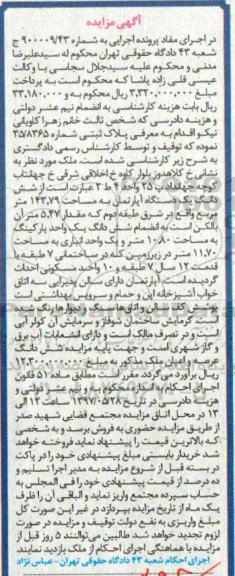 آگهی مزایده
در اجرای مفاد پرونده اجرایی به شماره ۹۰۰۰۰۹/۴۳ ج
شعبه ۴۳ دادگاه حقوقی تهران محکوم له سیدعلیرضا
مدنی و محکوم علیه سیدجلال سجاسی با وکالت
عیسی قلی زاده پاشا که محکوم است به پرداخت
مبلغ ۳,۳۲۰,۰۰۰,۰۰۰ ریال محکوم به و ۳۳,۱۸۰,۰۰۰
ریال بابت هزینه کارشناسی به انضمام نیم عشر دولتی
و هزینه دادرسی که شخص ثالث خانم زهرا کاویانی
نیکو اقدام به معرفی پلاک ثبتی شماره ۳۵/۸۳۶۵
نموده که توقیف و توسط کارشناس رسمی دادگستری
به شرح زیر کارشناسی شده است. ملک مورد نظر به
نشانی خ کلاهدوز بلوار کاوه خ اخلاقی شرقی خ جهانتاب
کوچه جهانتاب پ ۲۵ واحد ۴ ط ۲ عبارت است از شش
دانگ یک دستگاه آپارتمان به مساحت ۱۴۳.۷۹ متر
مربع واقع در شرق طبقه دوم که مقدار ۵.۴۷ متر آن
بالکن است به انضمام شش دانگ یک واحد پارکینگ
به مساحت ۱۰.۸۰ متر و یک واحد انباری به مساحت
۱۱.۷۰ متر در زیرزمین که در ساختمانی ۷ طبقه با
قدمت ۱۲ سال ۷ طبقه و ۱۰ واحد مسکونی احداث
گردیده است. آپارتمان دارای سالن پذیرایی سه اتاق
خواب آشپزخانه اپن و حمام و سرویس بهداشتی است
پوشش کف سالن و اتاق ها سنگ و دیوارها رنگ شده
است گرمایش ساختمان شوفاژ و سرمایش آن کولر آبی
است و در تصرف مالک است و دارای انشعابات آب برق
و گاز شهری است و جهت پایه مزایده شش دانگ
عرصه و اعیان ملک مذکور به مبلغ ۱۱,۳۰۰,۰۰۰,۰۰۰
ریال برآورد می گردد مقرر است مطابق ماده ۵۱ قانون
اجرای احکام به مقدار محکوم به و نیم عشر دولتی و
هزینه دادرسی در تاریخ ۱۳۹۷/۰۵/۲۸ ساعت ۱۲ الی
۱۳ در محل اتاق مزایده مجتمع قضایی شهید صدر
از طریق مزایده حضوری به فروش برسد و به شخصی
که بالاترین قیمت را پیشنهاد نماید فروخته خواهد
شد خریدار بایستی مبلغ پیشنهادی خود را در پاکت
در بسته قبل از شروع مزایده به مدیر اجرا تسلیم و
ده درصد از قیمت پیشنهادی خود را فی المجلس به
حساب سپرده مجتمع واریز نماید و الباقی آن را ظرف
یک ماه از تاریخ مزایده بپردازد در غیر این صورت کل
مبلغ واریزی به نفع دولت توقیف و مزایده در صورت
لزوم تجدید خواهد شد طالبین می توانند ۵ روز قبل از
مزایده با هماهنگی اجرای احکام از ملک بازدید نمایند.
اجرای احکام شعبه ۴۳ دادگاه حقوقی تهران - عباس نژاد